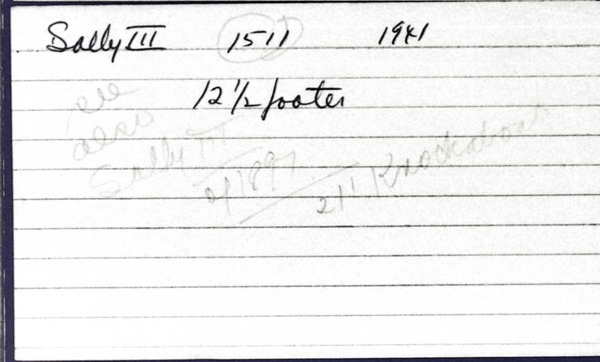 Sally III 1511 1941
12 1/2 footer
see
also
Sally III
of 1897
21' Knockabout